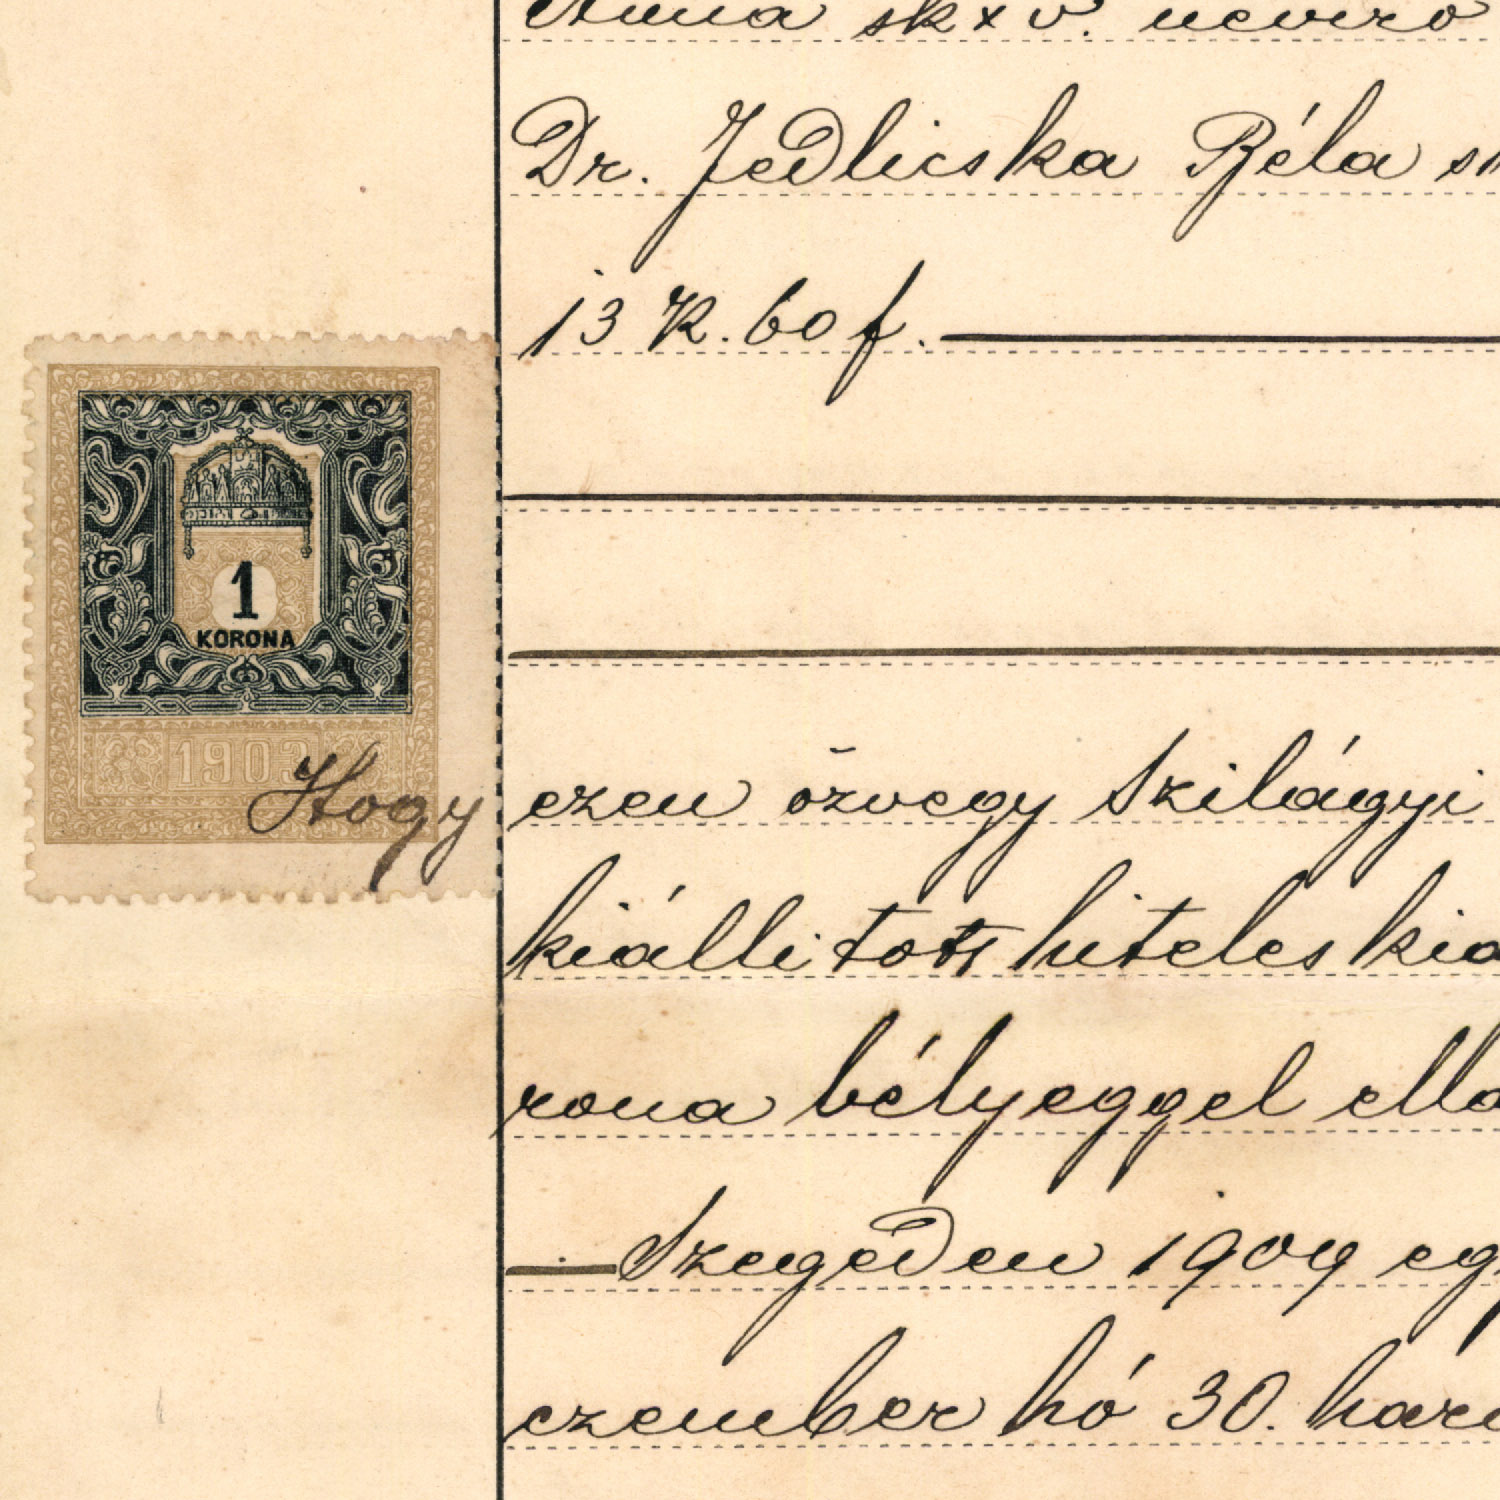 Anna sk x v. névíró
Dr. Jedlicska Béla sk
13 K. 60 f.
1
KORONA
1903
Hogy ezen özvegy Szilágyi
kiállitott hiteles kia
rona bélyeggel ella
— Szegeden 1909 egy
czember hó 30. harm